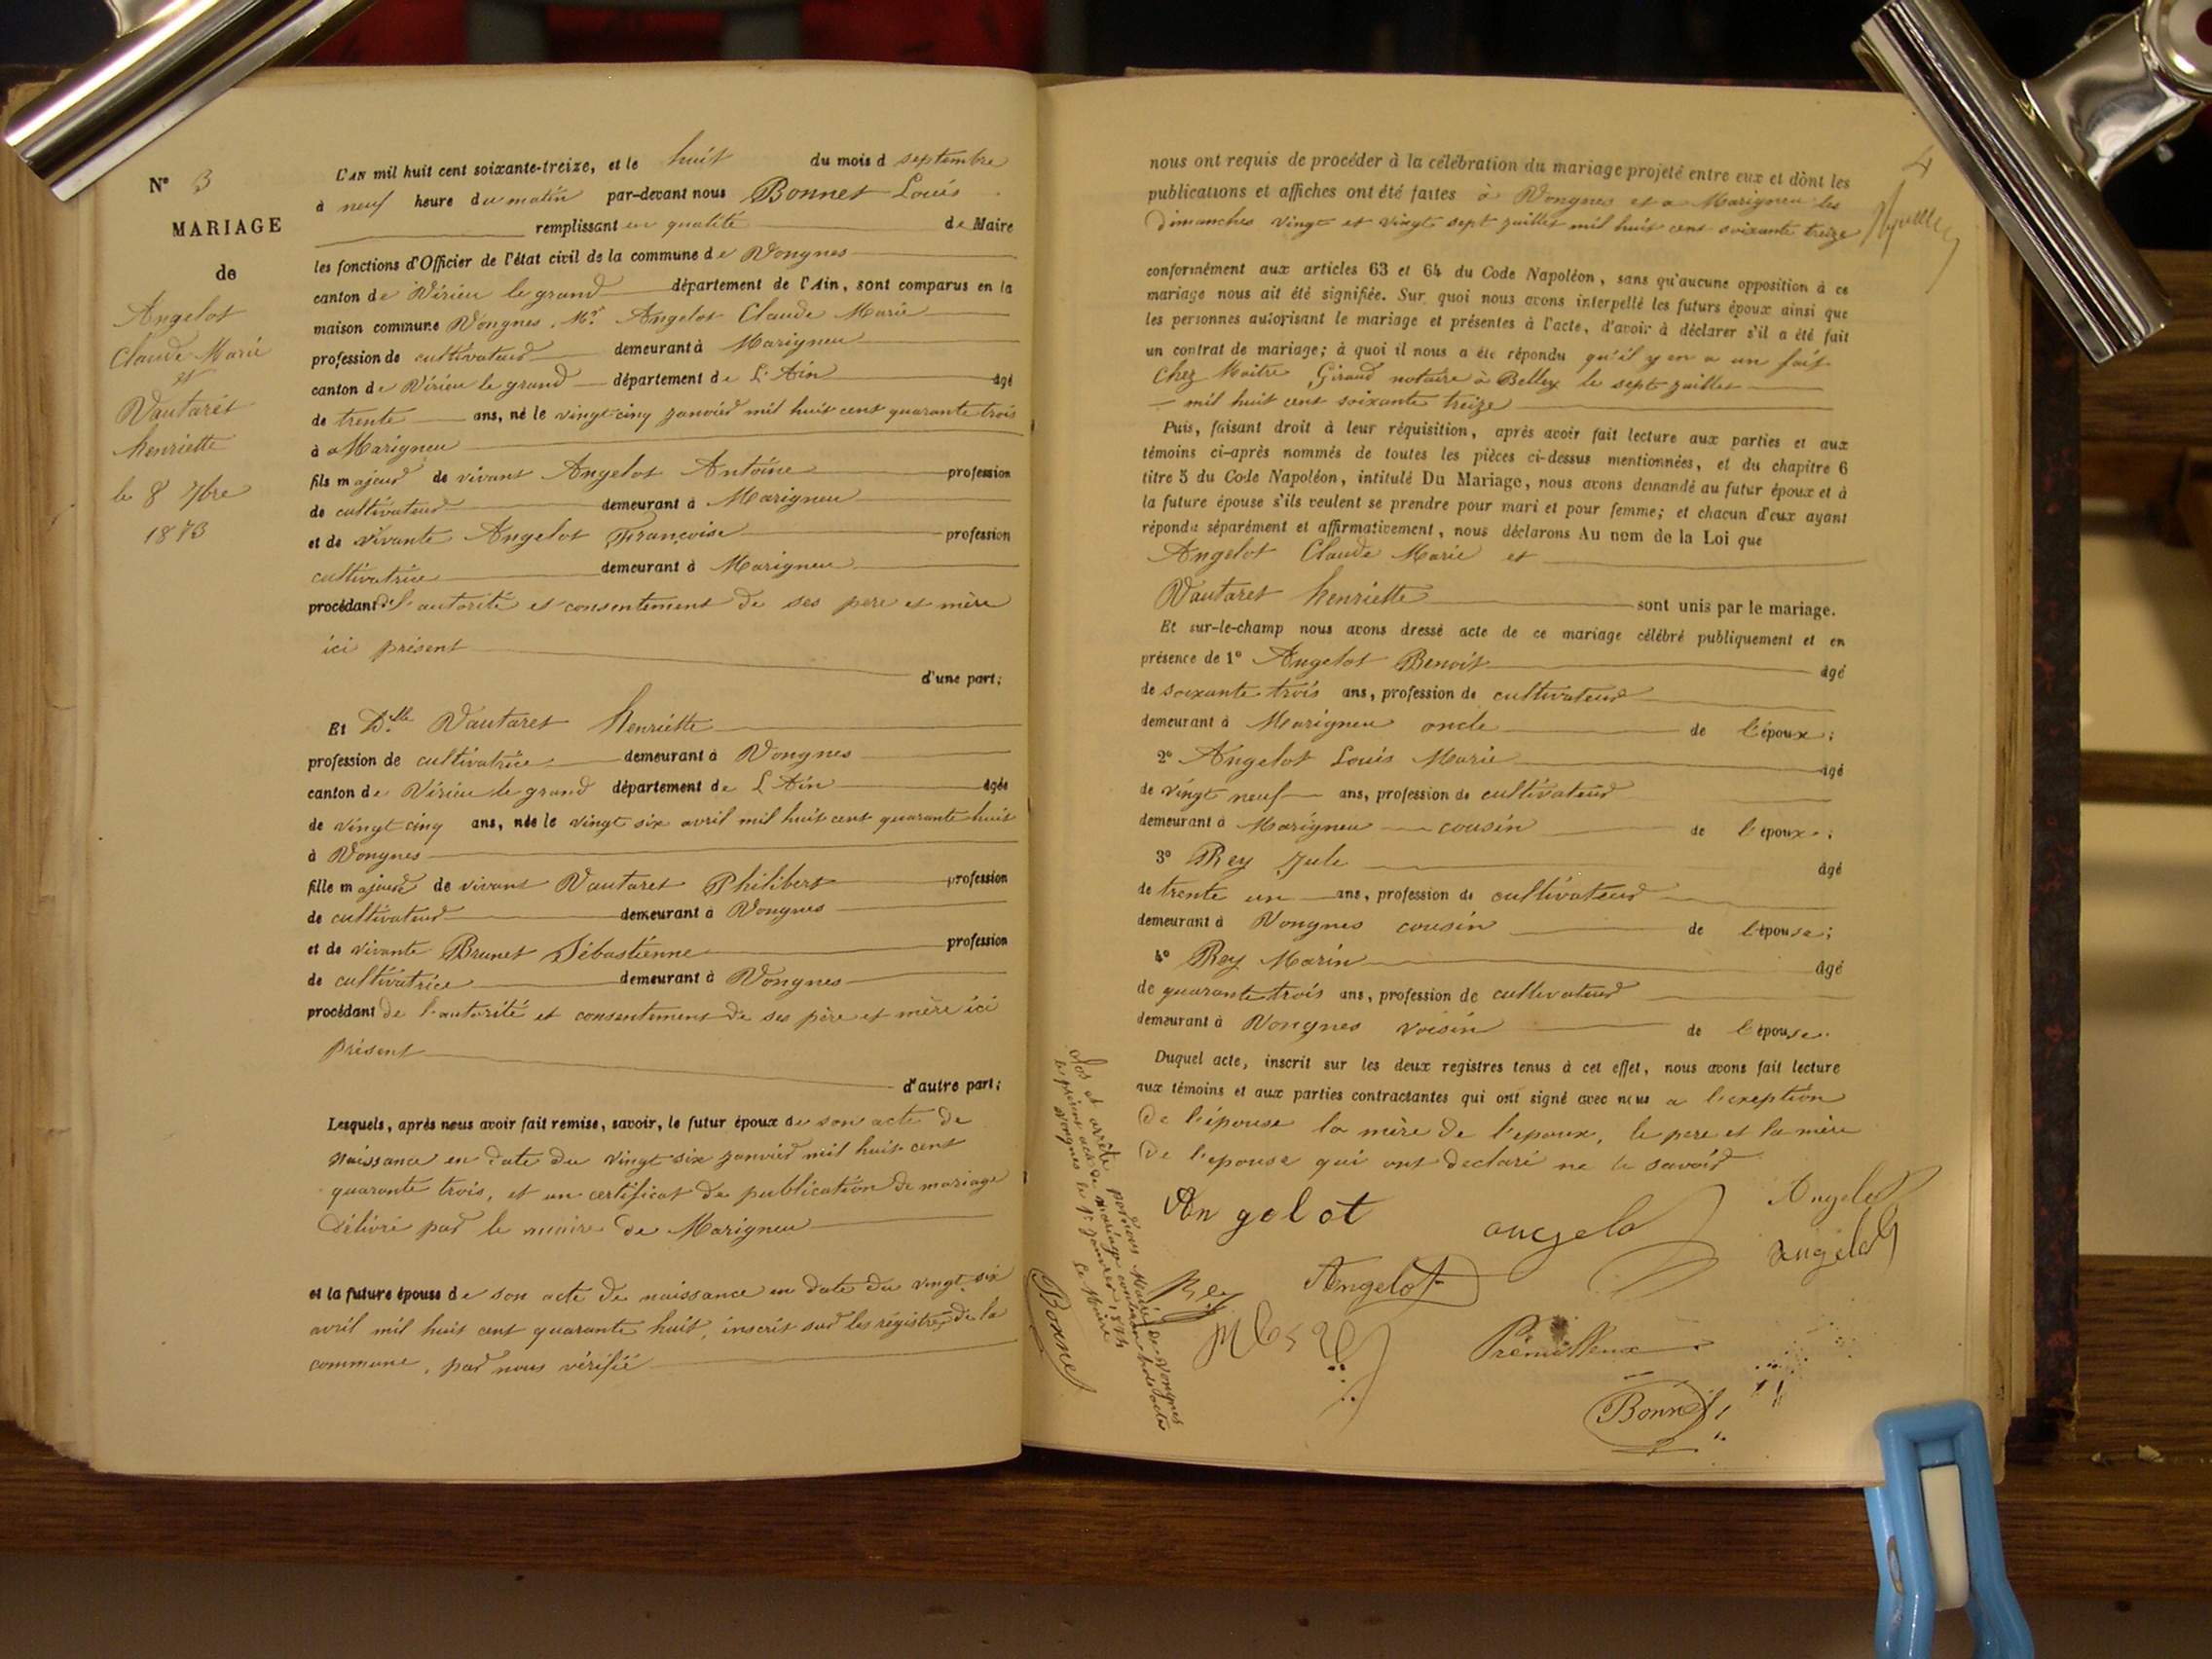 N° 3
MARIAGE
de
Angelot
Claude Marie
et
Vautaret
henriette
le 8 7bre
1873
L'AN mil huit cent soixante-treize, et le huit du mois d septembre
à neuf heure du matin par-devant nous Bonnet Louis
remplissant en qualité de Maire
les fonctions d'Officier de l'état civil de la commune de Vongnes
canton de Virieu le grand département de l'Ain, sont comparus en la
maison commune Vongnes, Mr Angelot Claude Marie
profession de cultivateur demeurant à Marignieu
canton de Virieu le grand département de L'Ain âgé
de trente ans, né le vingt-cinq janvier mil huit cent quarante trois
à Marignieu
fils majeur de vivant Angelot Antoine profession
de cultivateur demeurant à Marignieu
et de vivante Angelot Françoise profession
cultivatrice demeurant à Marignieu
procédant de l'autorité et consentement de ses pere et mère
ici présent
d'une part;
Et Dlle Vautaret henriette
profession de cultivatrice demeurant à Vongnes
canton de Virieu le grand département de L'Ain âgée
de vingt cinq ans, née le vingt six avril mil huit cent quarante huit
à Vongnes
fille majeure de vivant Vautaret Philibert profession
de cultivateur demeurant à Vongnes
et de vivante Brunet Sébastienne profession
de cultivatrice demeurant à Vongnes
procédant de l'autorité et consentement de ses père et mère ici
présent
d'autre part;
Lesquels, après nous avoir fait remise, savoir, le futur époux de son acte de
naissance en date du vingt six janvier mil huit cent
quarante trois, et un certificat de publication de mariage
délivré par le maire de Marignieu
et la future épouse de son acte de naissance en date du vingt six
avril mil huit cent quarante huit, inscrit sur les régistres de la
commune, par nous vérifié
4
nous ont requis de procéder à la célébration du mariage projeté entre eux et dont les
publications et affiches ont été faites à Vongnes et a Marignieu les
dimanches vingt et vingt sept juillet mil huit cent soixante treize
conformément aux articles 63 et 64 du Code Napoléon, sans qu'aucune opposition à ce
mariage nous ait été signifiée. Sur quoi nous avons interpellé les futurs époux ainsi que
les personnes autorisant le mariage et présentes à l'acte, d'avoir à déclarer s'il a été fait
un contrat de mariage; à quoi il nous a été répondu qu'il y en a un fait
chez Maitre Giraud notaire à Belley le sept juillet
mil huit cent soixante treize
Puis, faisant droit à leur réquisition, après avoir fait lecture aux parties et aux
témoins ci-après nommés de toutes les pièces ci-dessus mentionnées, et du chapitre 6
titre 5 du Code Napoléon, intitulé Du Mariage, nous avons demandé au futur époux et à
la future épouse s'ils veulent se prendre pour mari et pour femme; et chacun d'eux ayant
répondu séparément et affirmativement, nous déclarons Au nom de la Loi que
Angelot Claude Marie et
Vautaret henriette sont unis par le mariage.
Et sur-le-champ nous avons dressé acte de ce mariage célébré publiquement et en
présence de 1° Angelot Benoit âgé
de soixante trois ans, profession de cultivateur
demeurant à Marignieu oncle de l'époux;
2° Angelot Louis Marie âgé
de vingt neuf ans, profession de cultivateur
demeurant à Marignieu cousin de l'époux;
3° Rey Jule âgé
de trente un ans, profession de cultivateur
demeurant à Vongnes cousin de l'épouse;
4° Rey Marin âgé
de quarante trois ans, profession de cultivateur
demeurant à Vongnes voisin de l'épouse.
Duquel acte, inscrit sur les deux registres tenus à cet effet, nous avons fait lecture
aux témoins et aux parties contractantes qui ont signé avec nous a l'exeption
de l'épouse la mère de l'epoux, le pere et la mère
de l'epouse qui ont declaré ne le savoir
Angelot angelo Angelot
angelot
Rey Angelot
Prémilleux
Bonnet
Clos et arrêté par nous Maire de Vongnes
le présent acte de mariage contenant trois actes
Vongnes le 1er janvier 1874
Le Maire
Bonnet